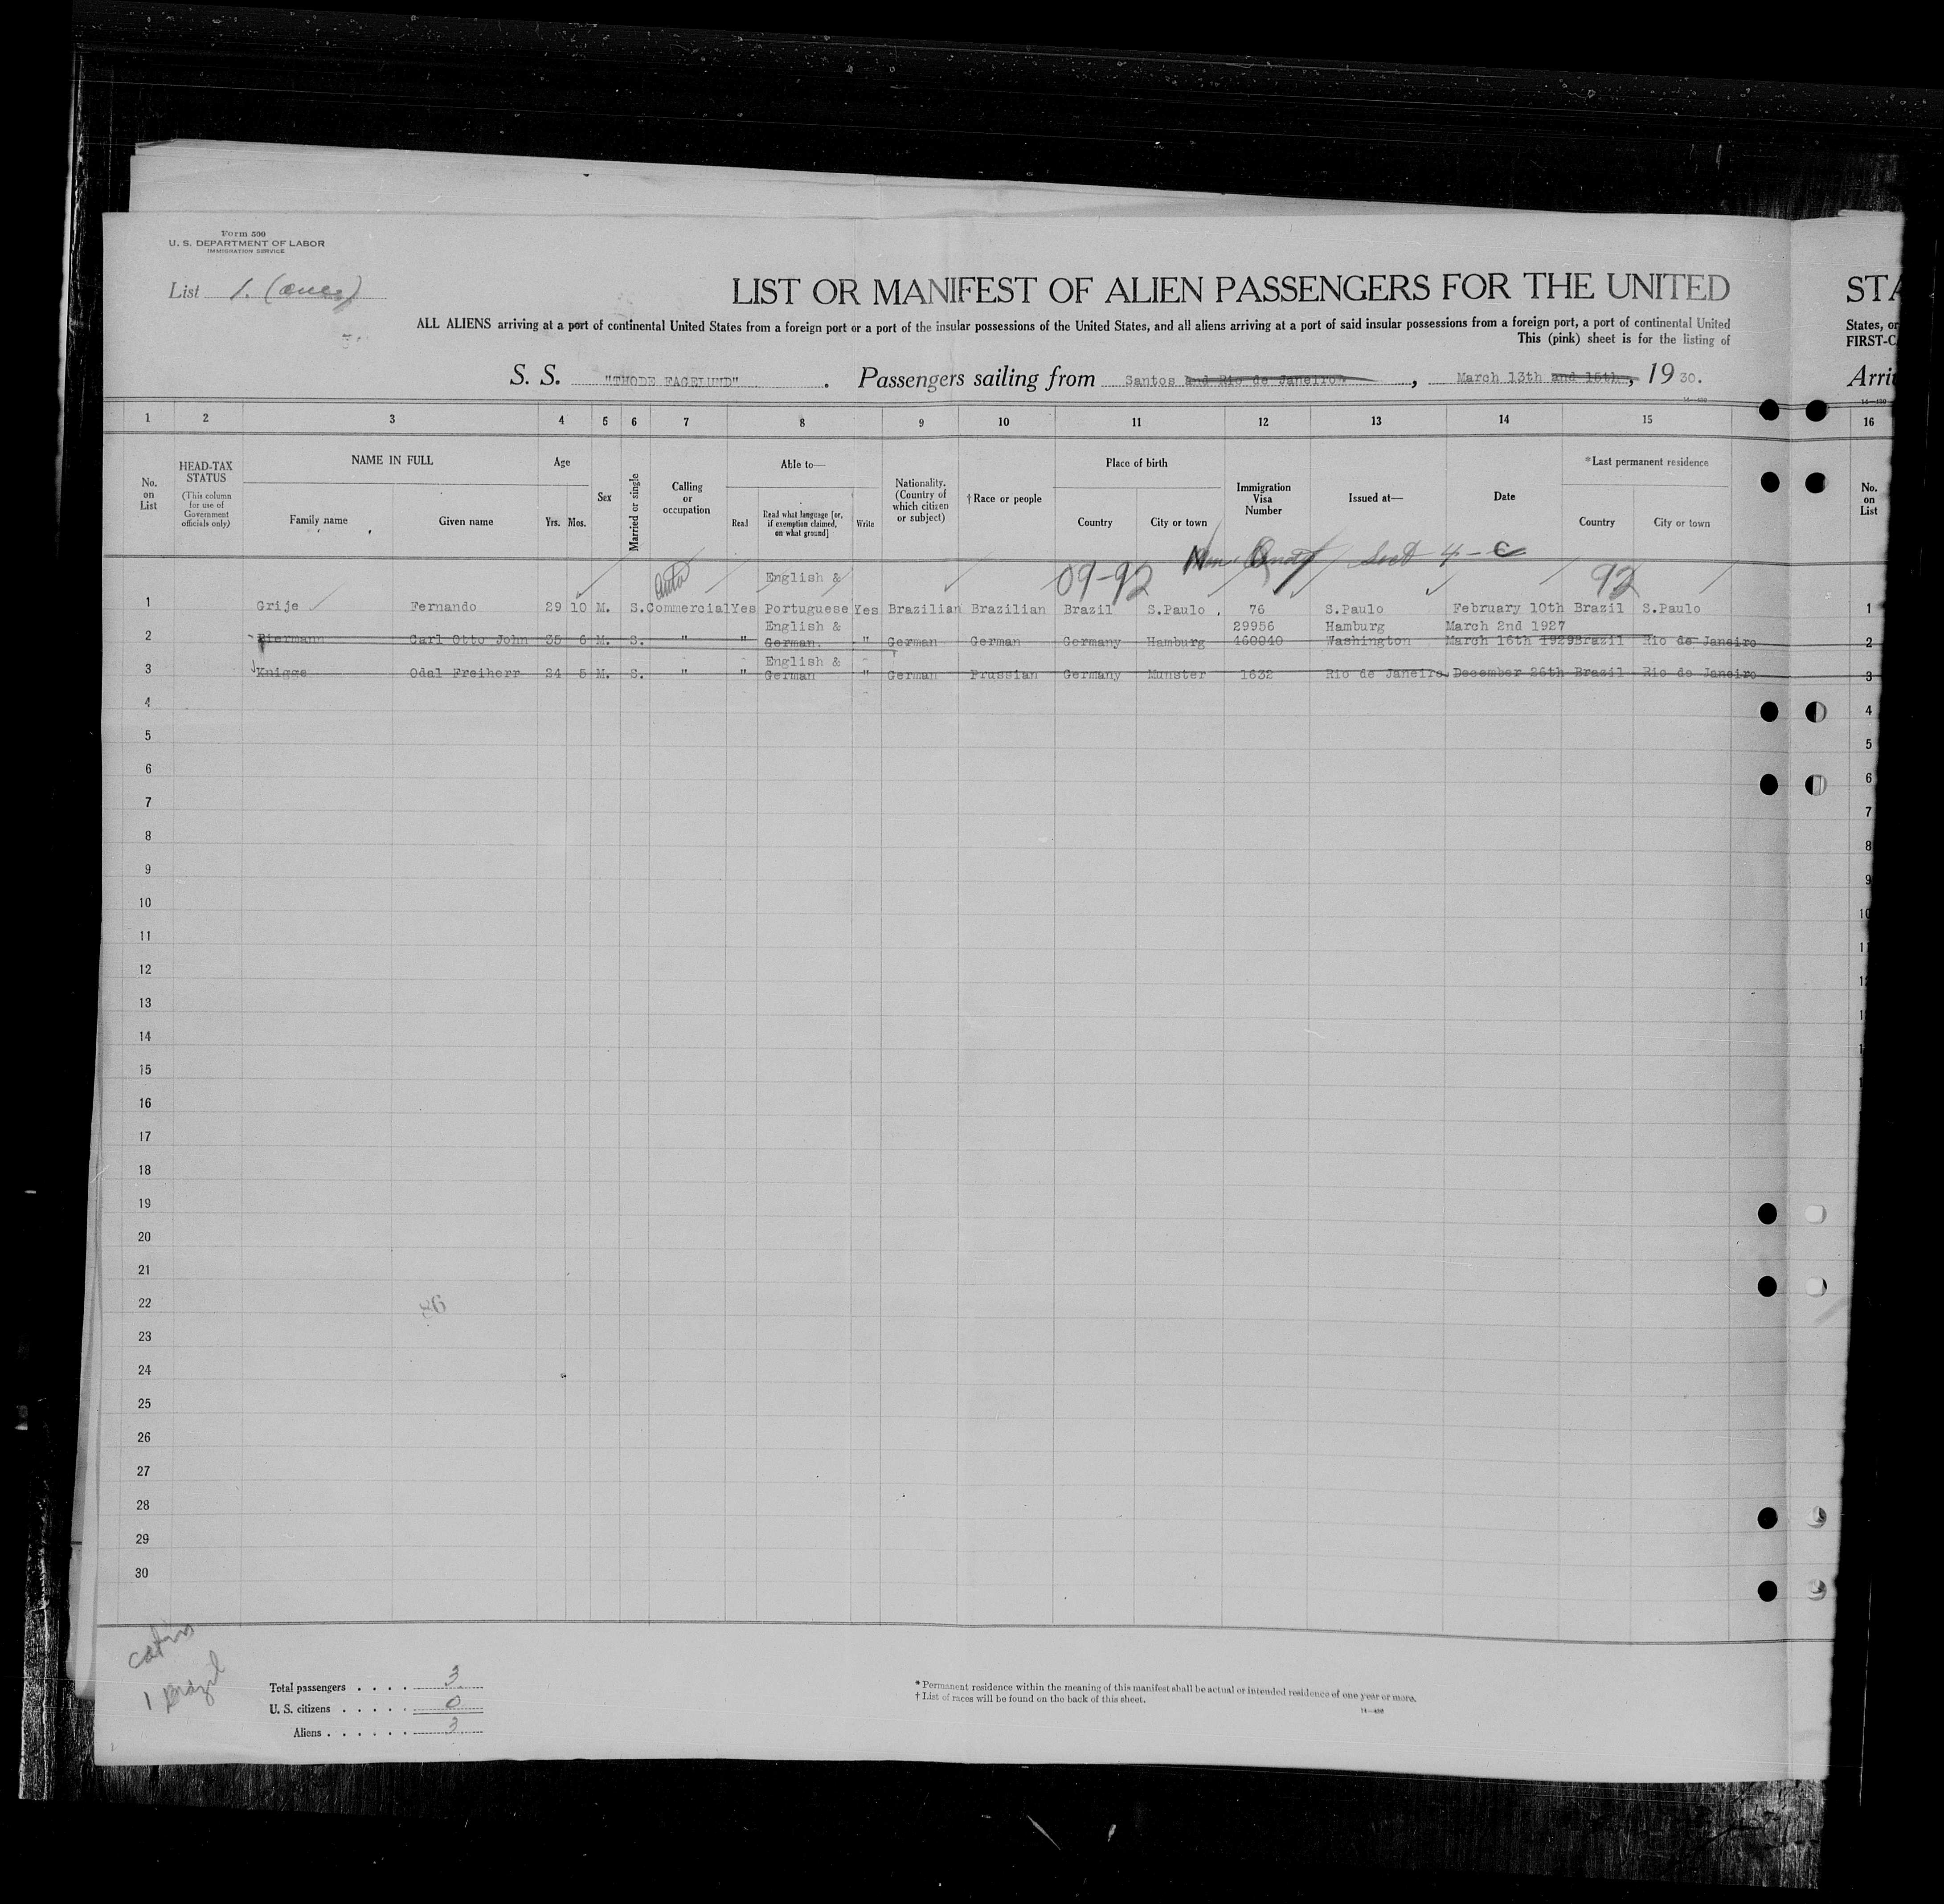 Form 500
U. S. DEPARTMENT OF LABOR
IMMIGRATION SERVICE
List 1.
LIST OR MANIFEST OF ALIEN PASSENGERS FOR THE UNITED
STA
ALL ALIENS arriving at a port of continental United States from a foreign port or a port of the insular possessions of the United States, and all aliens arriving at a port of said insular possessions from a foreign port, a port of continental United
States, or
This (pink) sheet is for the listing of
FIRST-C
S. S. "THODE FAGELUND". Passengers sailing from Santos and Rio de Janeiro, March 13th and 15th, 1930.
Arri
1 2 3 4 5 6 7 8 9 10 11 12 13 14 15 16
No. on List
HEAD-TAX STATUS
(This column for use of Government officials only)
NAME IN FULL
Family name
Given name
Age
Yrs. Mos.
Sex
Married or single
Calling or occupation
Able to—
Read
Read what language [or, if exemption claimed, on what ground]
Write
Nationality. (Country of which citizen or subject)
†Race or people
Place of birth
Country
City or town
Immigration Visa Number
Issued at—
Date
*Last permanent residence
Country
City or town
No. on List
Sect 4-C
Auto
English &
09-92
92
1 Grije Fernando 29 10 M. S. Commercial Yes Portuguese Yes Brazilian Brazilian Brazil S.Paulo 76 S.Paulo February 10th Brazil S.Paulo 1
English & 29956 Hamburg March 2nd 1927
2 Biermann Carl Otto John 35 6 M. S. " " German. " German German Germany Hamburg 460040 Washington March 16th 1929 Brazil Rio de Janeiro 2
English &
3 Knigge Odal Freiherr 24 5 M. S. " " German " German Prussian Germany Munster 1632 Rio de Janeiro, December 26th Brazil Rio de Janeiro 3
4 4
5 5
6 6
7 7
8 8
9 9
10 10
11
12
13
14
15
16
17
18
19
20
21
22
23
24
25
26
27
28
29
30
1 Brazil
Total passengers . . . . 3
U. S. citizens . . . . . 0
Aliens . . . . . . 3
* Permanent residence within the meaning of this manifest shall be actual or intended residence of one year or more.
† List of races will be found on the back of this sheet.